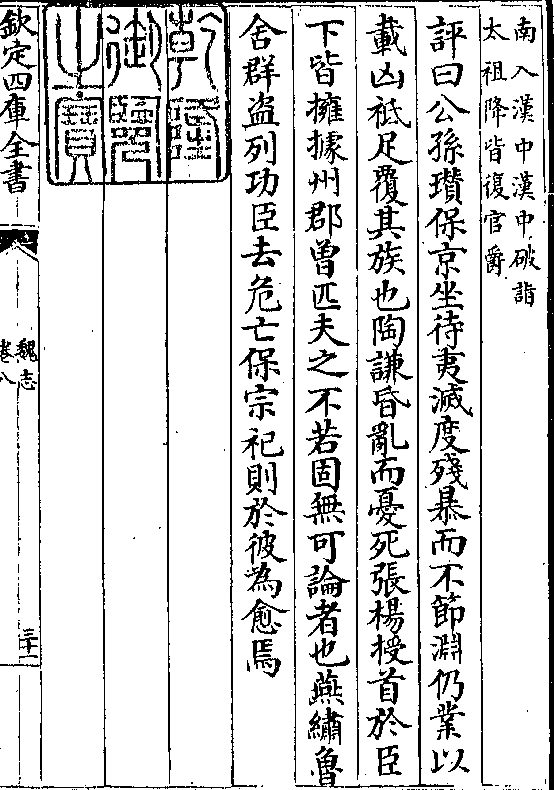 南入漢中漢中破詣
太祖降皆復官爵
評曰公孫瓚保京坐待夷滅度殘暴而不節淵仍業以
載凶祗足覆其族也陶謙昏亂而憂死張楊授首於臣
下皆擁據州郡曽匹夫之不若固無可論者也燕繡魯
舍群盗列功臣去危亡保宗祀則於彼為愈焉
乾隆御覽之寶
欽定四庫全書
魏志
卷八
三十一